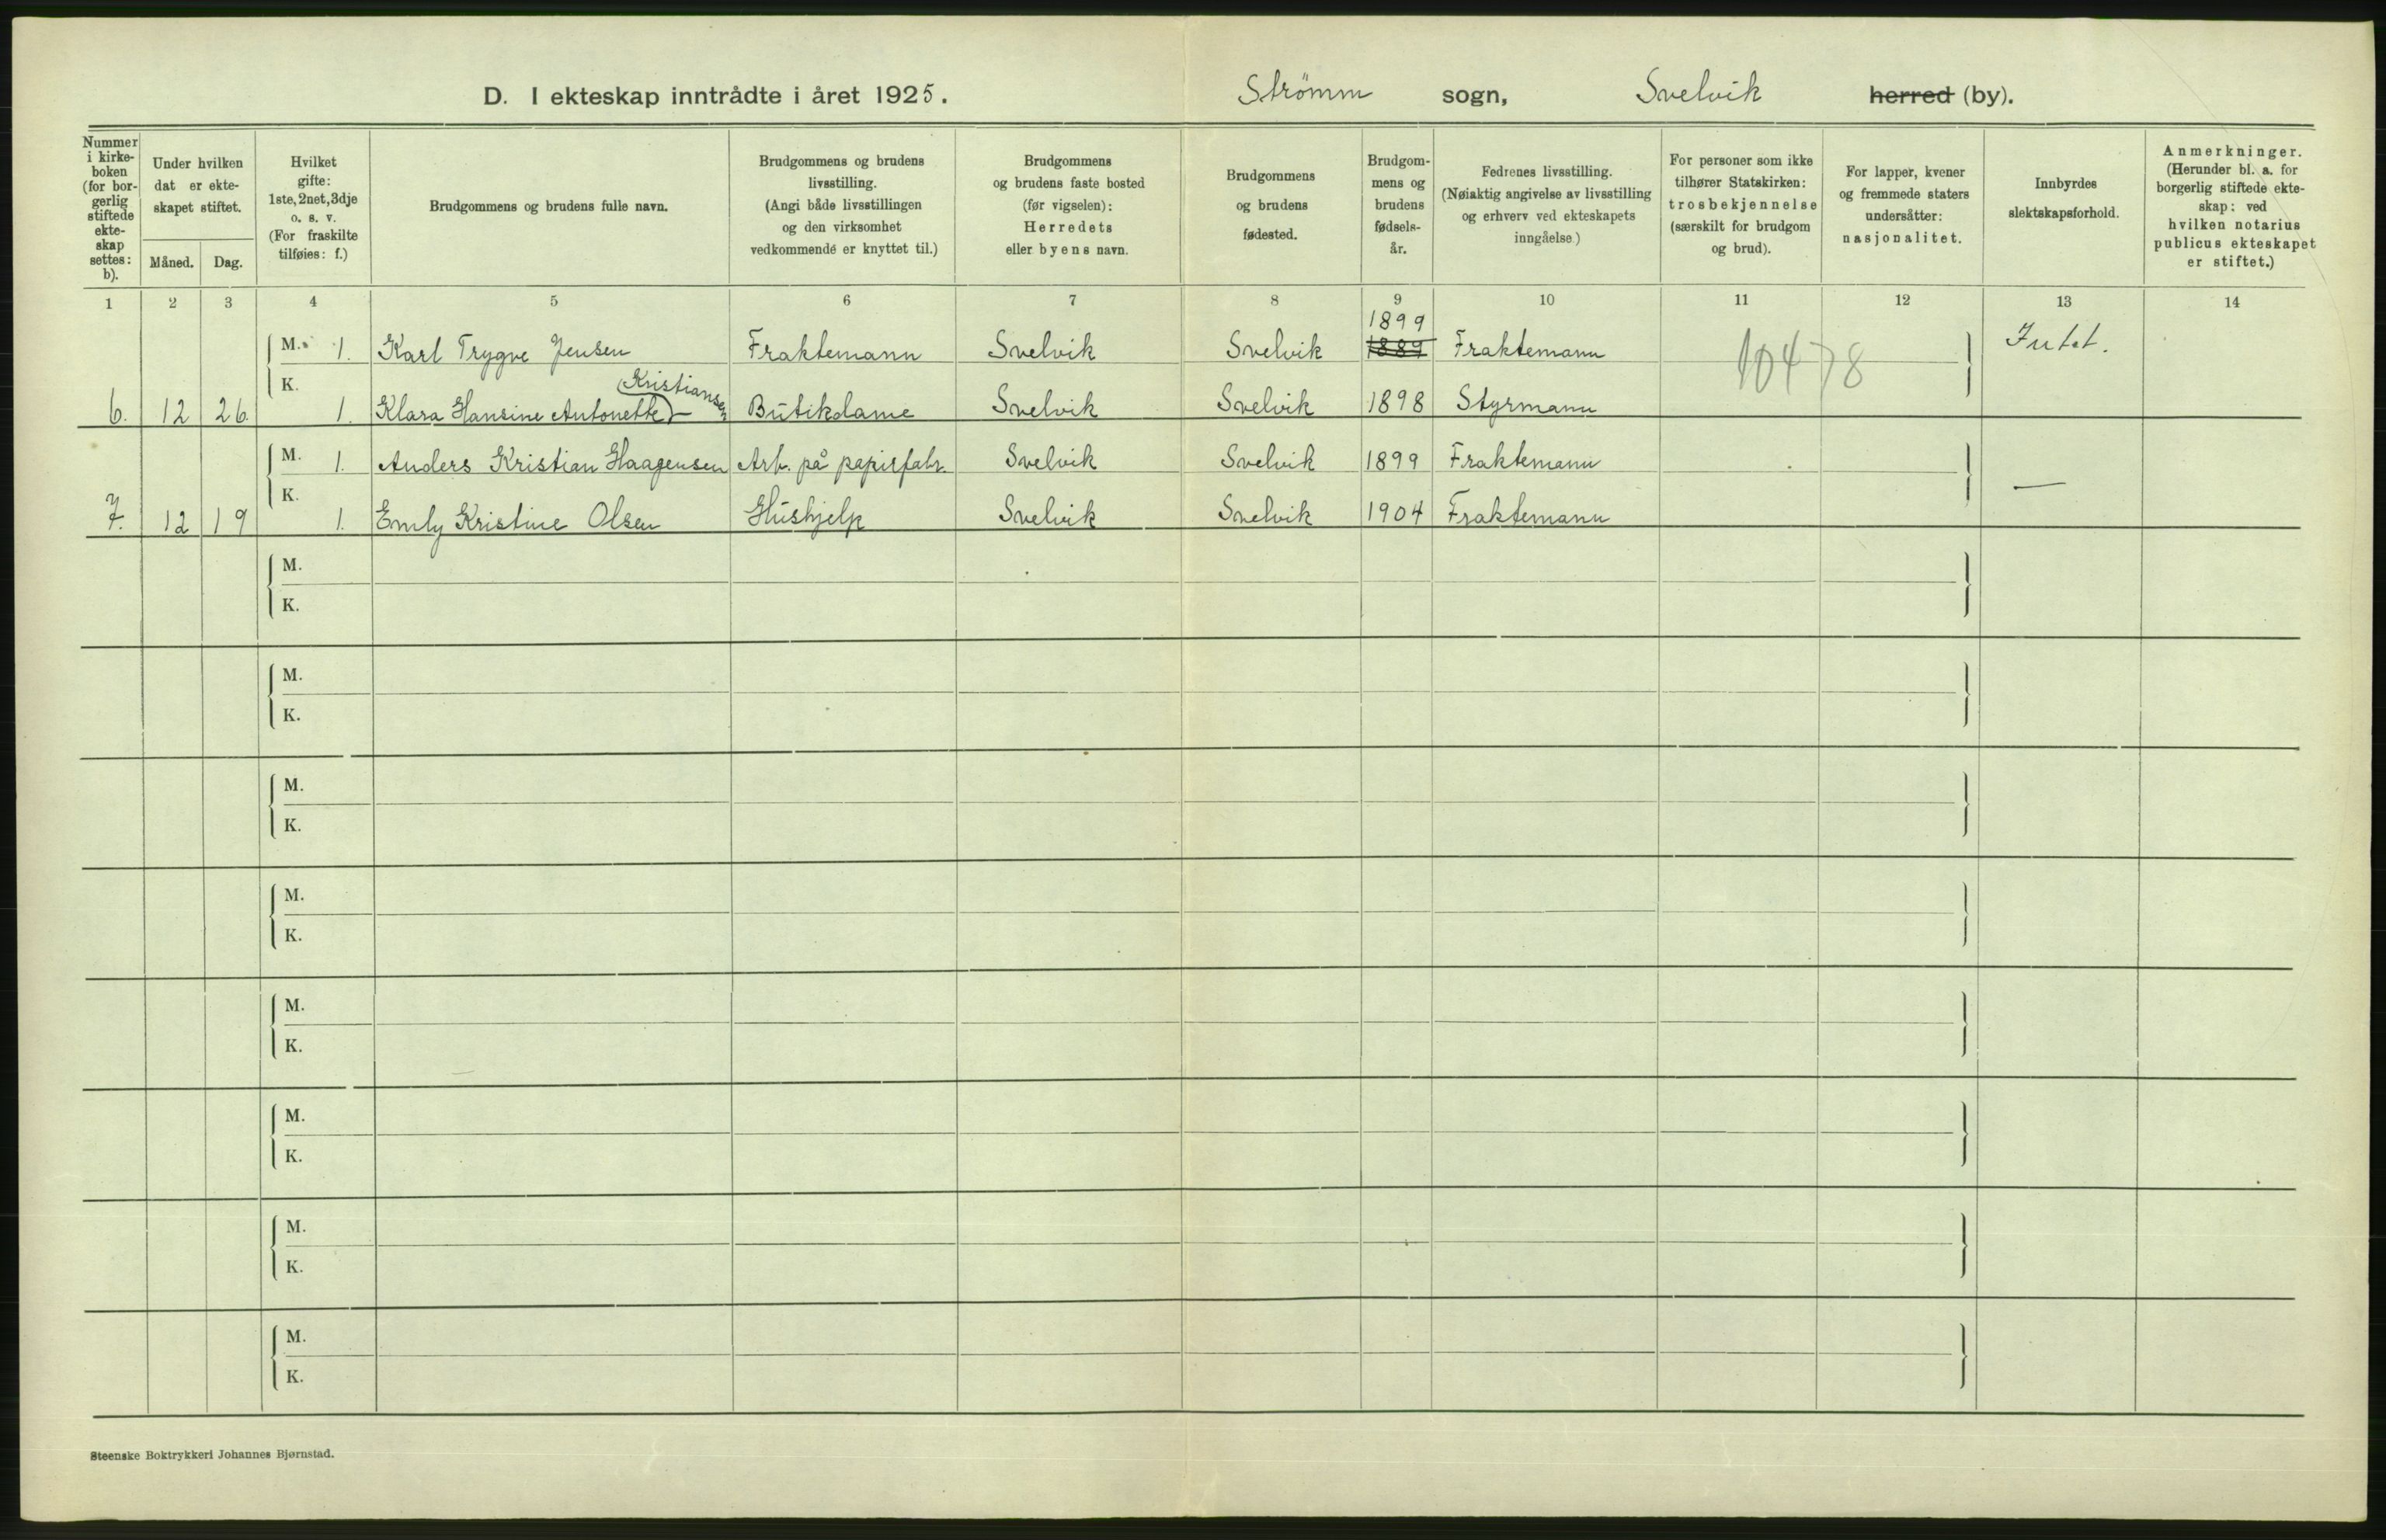 D. I ekteskap inntrådte i året 1925. Strömm sogn, Svelvik herred (by).
Nummer
i kirke-
boken
(for bor-
gerlig
stiftede
ekte-
skap
settes:
b).
Under hvilken
dat er ekte-
skapet stiftet.
Måned. Dag.
Hvilket
gifte:
1ste, 2net, 3dje
o. s. v.
(For fraskilte
tilføies: f.)
Brudgommens og brudens fulle navn.
Brudgommens og brudens
livsstilling.
(Angi både livsstillingen
og den virksomhet
vedkommende er knyttet til.)
Brudgommens
og brudens faste bosted
(før vigselen):
Herredets
eller byens navn.
Brudgommens
og brudens
fødested.
Brudgom-
mens og
brudens
fødsels-
år.
Fedrenes livsstilling.
(Nøiaktig angivelse av livsstilling
og erhverv ved ekteskapets
inngåelse)
For personer som ikke
tilhører Statskirken:
trosbekjennelse
(særskilt for brudgom
og brud).
For lapper, kvener
og fremmede staters
undersåtter:
nasjonalitet.
Innbyrdes
slektskapsforhold.
Anmerkninger.
(Herunder bl. a. for
borgerlig stiftede ekte-
skap: ved
hvilken notarius
publicus ekteskapet
er stiftet.)
1 2 3 4 5 6 7 8 9 10 11 12 13 14
1899
M. 1. Karl Trygve Jensen Fraktemann Svelvik Svelvik 1889 Fraktemann 10478 Intet.
K. Kristiansen
6. 12 26. 1. Klara Hansine Antonette Butikdame Svelvik Svelvik 1898 Styrmann
M. 1. Anders Kristian Haagensen Arb. på papirfabr. Svelvik Svelvik 1899 Fraktemann —
K.
7. 12 19 1. Emly Kristine Olsen Hushjelp Svelvik Svelvik 1904 Fraktemann
M.
K.
M.
K.
M.
K.
M.
K.
M.
K.
M.
K.
M.
K.
M.
K.
Steenske Boktrykkeri Johannes Bjørnstad.